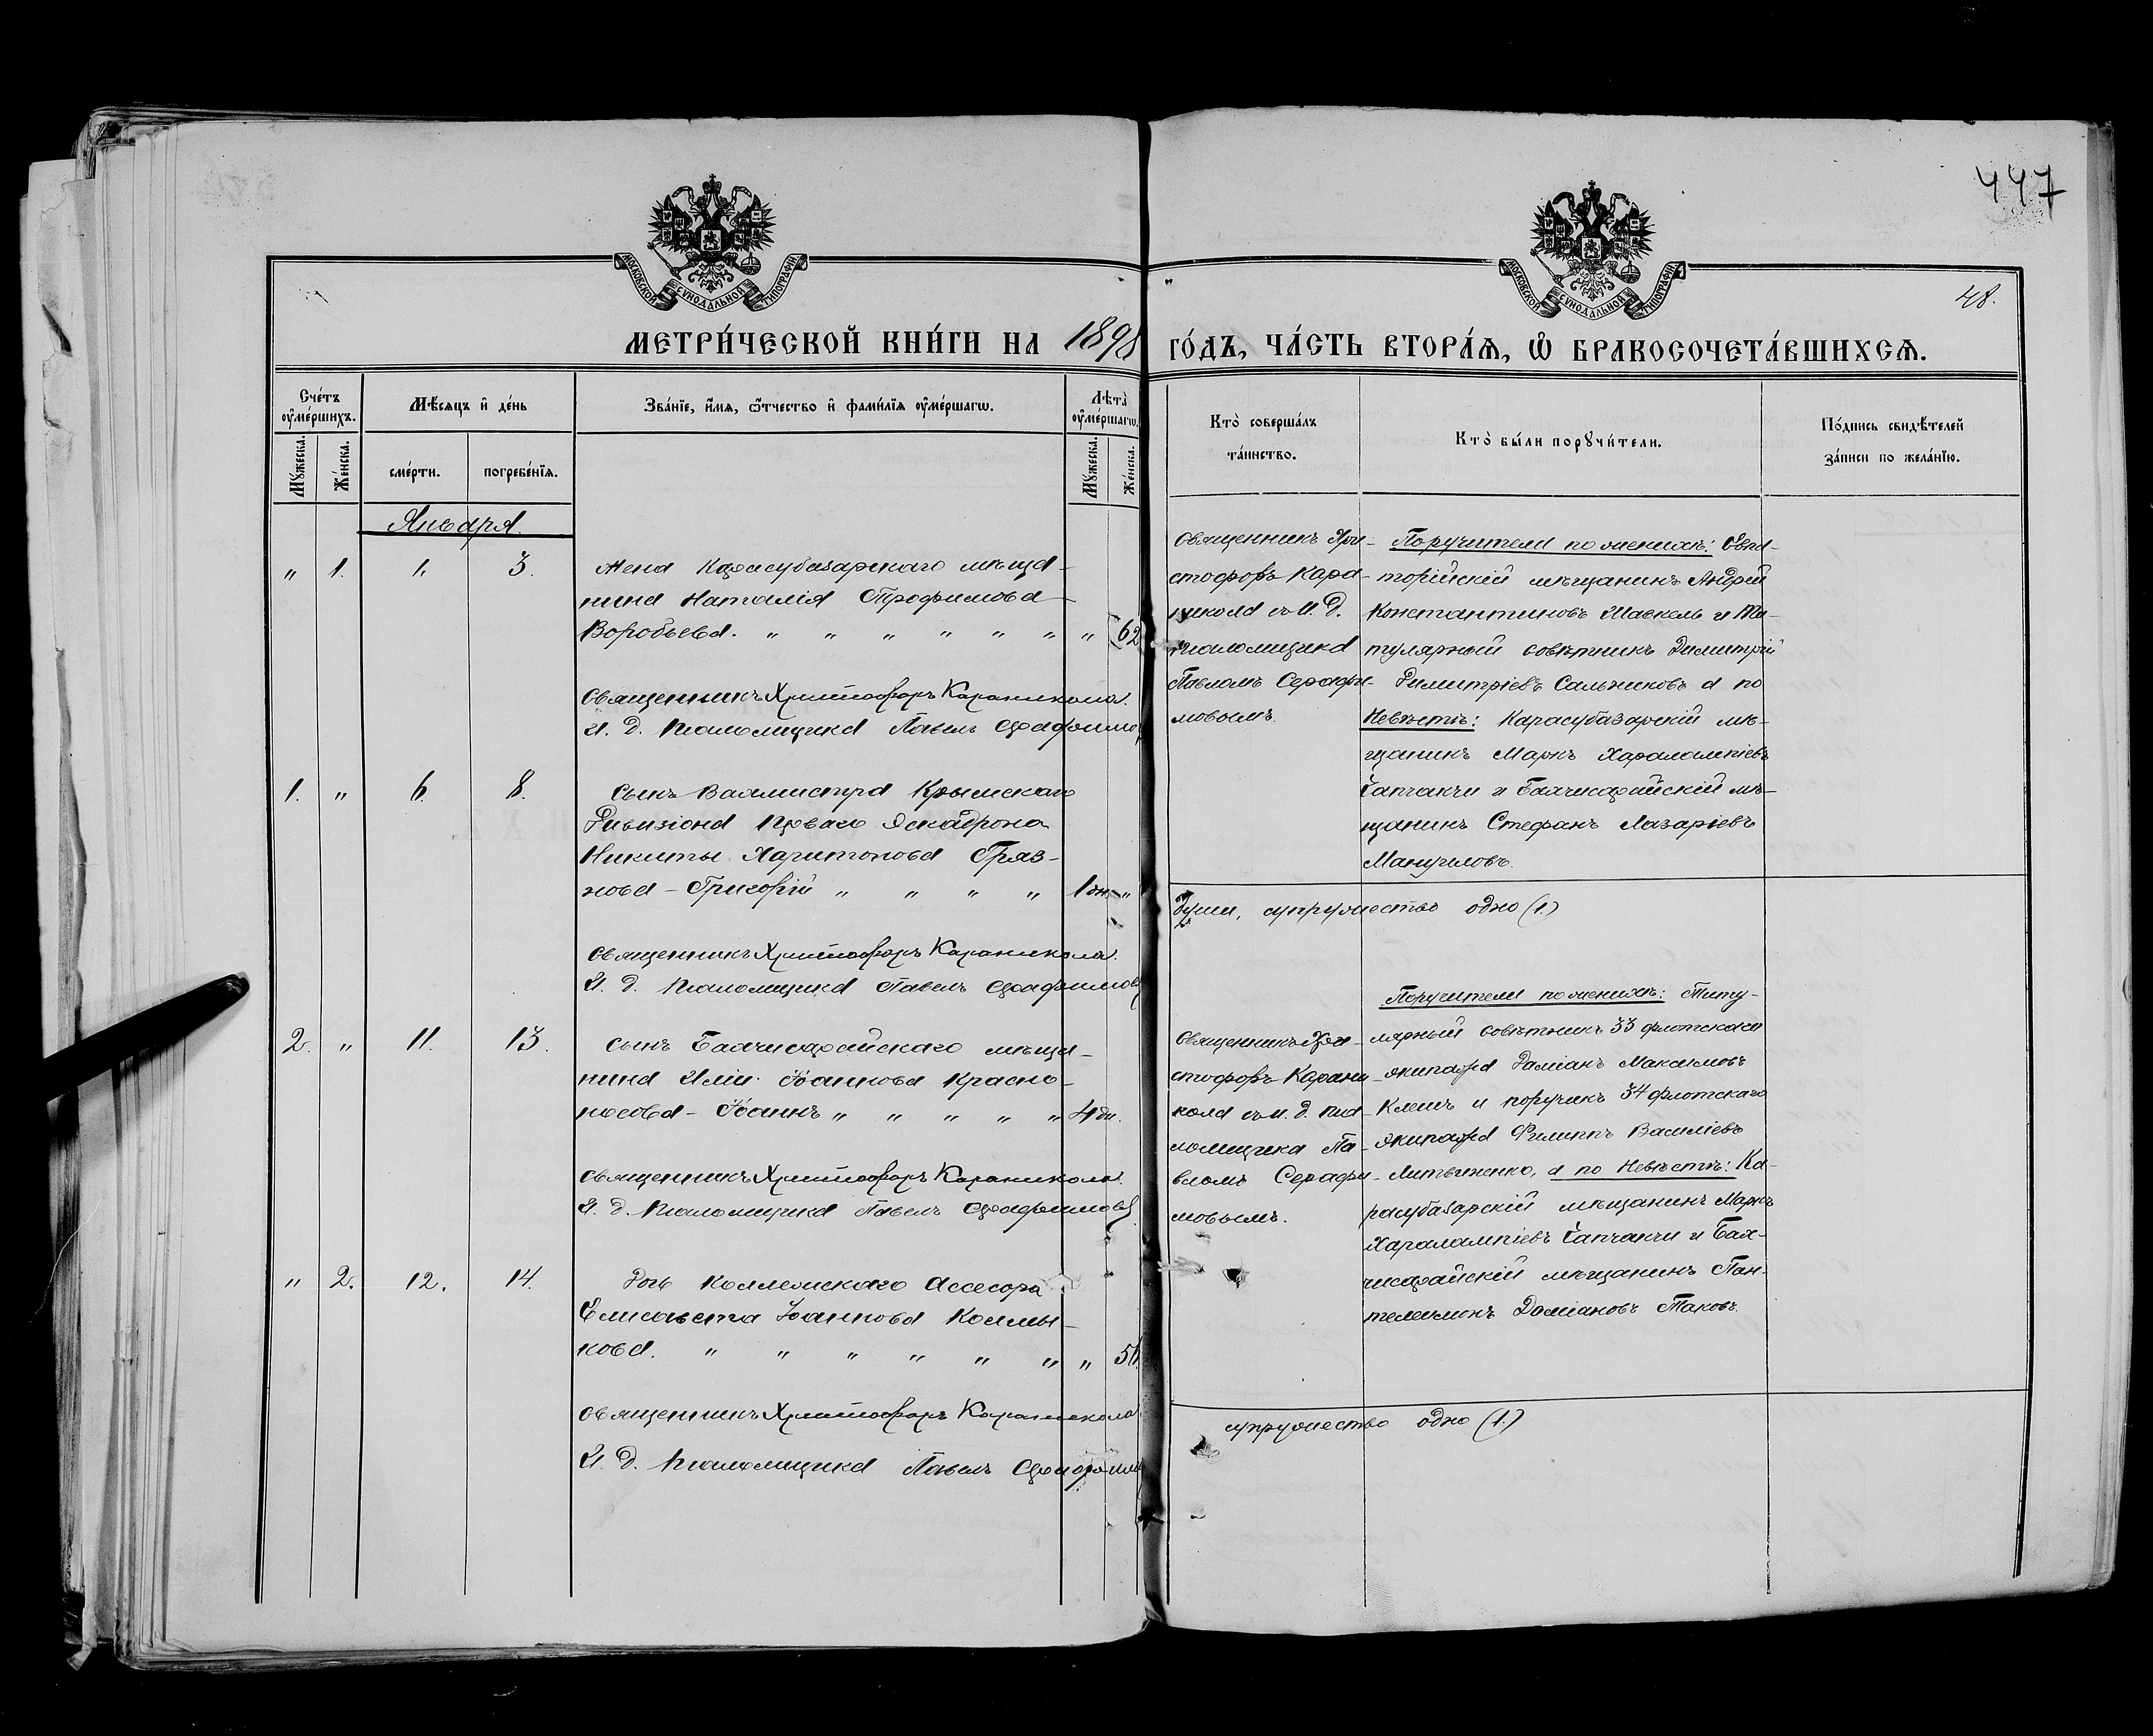 447
МОСКОВСКОЙ СУНОДАЛЬНОЙ ТИПОГРАФІИ
МЕТРИ́ЧЕСКОЙ КНИ́ГИ НА 1898
Сче́тъ ᲂу҆ме́ршихъ.
Мѣ́сяцъ и҆ де́нь
Зва́нїе, и҆́мѧ, ѻ҆́тчество и҆ фами́лїѧ ᲂу҆ме́ршагѡ.
Лѣта̀ ᲂу҆ме́ршагѡ.
Мꙋ́жеска.
Же́нска.
сме́рти.
погребе́нїѧ.
Мꙋ́жеска.
Же́нска.
Января.
" 1. 1. 3. Жена Карасубазарскаго мѣща-
нина Наталія Трофимова
Воробьева. " " " " " " " 62
Священникъ Христофоръ Караникола.
И. Д. Псаломщика Павелъ Серафимов
1. " 6. 8. Сынъ Вахмистра Крымскаго
Дивизіона Перваго Эскадрона
Никиты Харитонова Гряз-
нова - Григорій " " " " 1 дн. "
Священникъ Христофоръ Караникола.
И. Д. Псаломщика Павелъ Серафимовъ
2. " 11. 13. Сынъ Бахчисарайскаго мѣща-
нина Иліи Іоаннова Красно-
носова - Іоаннъ " " " " " 4 дн.
Священникъ Христофоръ Караникола.
И. Д. Псаломщика Павелъ Серафимовъ
" 2. 12. 14. Дочь Коллежскаго Ассесора
Елисавета Іоаннова Колмы-
кова. " " " " " " "
Священникъ Христофоръ Караникола
И. Д. Псаломщика Павелъ Серафимов
МОСКОВСКОЙ СУНОДАЛЬНОЙ ТИПОГРАФІИ
48.
ГО́ДЪ, ЧА́СТЬ ВТОРА́Ѧ, Ѽ БРАКОСОЧЕТА́ВШИХСѦ.
Кто̀ соверша́лъ
та́инство.
Кто̀ бы́ли порꙋчи́тели.
По́дпись свидѣ́телей
за́писи по жела́нїю.
Священникъ Хри-
стофоръ Кара-
никола съ И. Д.
псаломщика
Павломъ Серафи-
мовымъ.
Поручители по женихѣ: Евпа-
торійскій мѣщанинъ Андрей
Константиновъ Шавкель и Ти-
тулярный совѣтникъ Димитрій
Димитріевъ Сальниковъ а по
Невѣстѣ: Карасубазарскій мѣ-
щанинъ Маркъ Харалампіевъ
Сапчакчи и Бахчисарайскій мѣ-
щанинъ Стефанъ Лазаріевъ
Мануиловъ.
Души, супружество одно (1.)
Священникъ Хри-
стофоръ Карани-
кола съ и. д. пса-
ломщика Па-
вломъ Серафи-
мовымъ.
Поручители по женихѣ: Титу-
лярный совѣтникъ 33 флотскаго
экипажа Даміанъ Максимовъ
Клешъ и поручикъ 34 флотскаго
экипажа Филиппъ Василіевъ
Литвиненко, а по Невѣстѣ: Ка-
расубазарскій мѣщанинъ Маркъ
Харалампіевъ Сапчакчи и Бах-
чисарайскій мѣщанинъ Пан-
телеимонъ Даміановъ Таковъ.
супружество одно (1.)